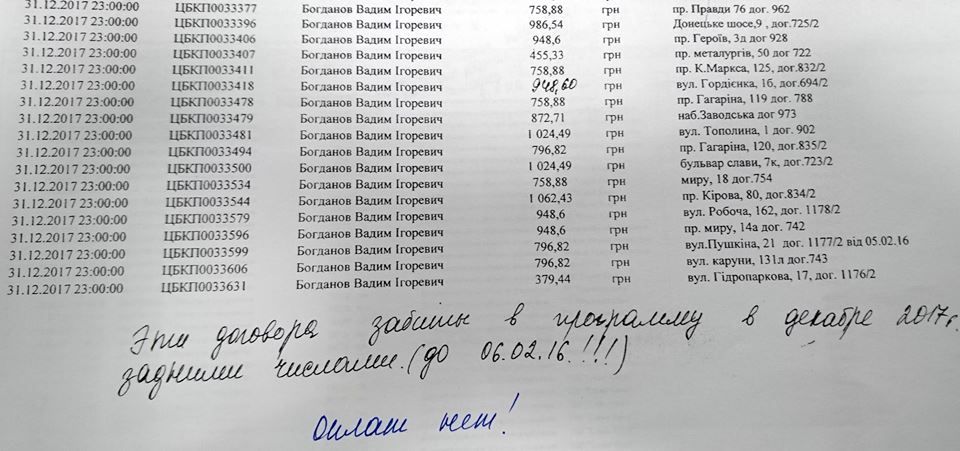 31.12.2017 23:00:00 ЦБКП0033377 Богданов Вадим Ігоревич 758,88 грн пр. Правди 76 дог. 962
31.12.2017 23:00:00 ЦБКП0033396 Богданов Вадим Ігоревич 986,54 грн Донецьке шосе,9 , дог.725/2
31.12.2017 23:00:00 ЦБКП0033406 Богданов Вадим Ігоревич 948,6 грн пр. Героїв, 3д дог 928
31.12.2017 23:00:00 ЦБКП0033407 Богданов Вадим Ігоревич 455,33 грн пр. металургів, 50 дог 722
31.12.2017 23:00:00 ЦБКП0033411 Богданов Вадим Ігоревич 758,88 грн пр. К.Маркса, 125, дог.832/2
31.12.2017 23:00:00 ЦБКП0033418 Богданов Вадим Ігоревич 948,60 грн вул. Гордієнка, 1б, дог.694/2
31.12.2017 23:00:00 ЦБКП0033478 Богданов Вадим Ігоревич 758,88 грн пр. Гагаріна, 119 дог. 788
31.12.2017 23:00:00 ЦБКП0033479 Богданов Вадим Ігоревич 872,71 грн наб.Заводська дог 973
31.12.2017 23:00:00 ЦБКП0033481 Богданов Вадим Ігоревич 1 024,49 грн вул. Тополина, 1 дог. 902
31.12.2017 23:00:00 ЦБКП0033494 Богданов Вадим Ігоревич 796,82 грн пр. Гагаріна, 120, дог.835/2
31.12.2017 23:00:00 ЦБКП0033500 Богданов Вадим Ігоревич 1 024,49 грн бульвар слави, 7к, дог.723/2
31.12.2017 23:00:00 ЦБКП0033534 Богданов Вадим Ігоревич 758,88 грн миру, 18 дог.754
31.12.2017 23:00:00 ЦБКП0033544 Богданов Вадим Ігоревич 1 062,43 грн пр. Кірова, 80, дог.834/2
31.12.2017 23:00:00 ЦБКП0033579 Богданов Вадим Ігоревич 948,6 грн вул. Робоча, 162, дог. 1178/2
31.12.2017 23:00:00 ЦБКП0033596 Богданов Вадим Ігоревич 948,6 грн пр. миру, 14а дог. 742
31.12.2017 23:00:00 ЦБКП0033599 Богданов Вадим Ігоревич 796,82 грн вул.Пушкіна, 21 дог. 1177/2 від 05.02.16
31.12.2017 23:00:00 ЦБКП0033606 Богданов Вадим Ігоревич 796,82 грн вул. каруни, 131л дог.743
31.12.2017 23:00:00 ЦБКП0033631 Богданов Вадим Ігоревич 379,44 грн вул. Гідропаркова, 17, дог. 1176/2
Эти договора забиты в программу в декабре 2017г.
задними числами.(до 06.02.16.!!!)
Оплат нет!